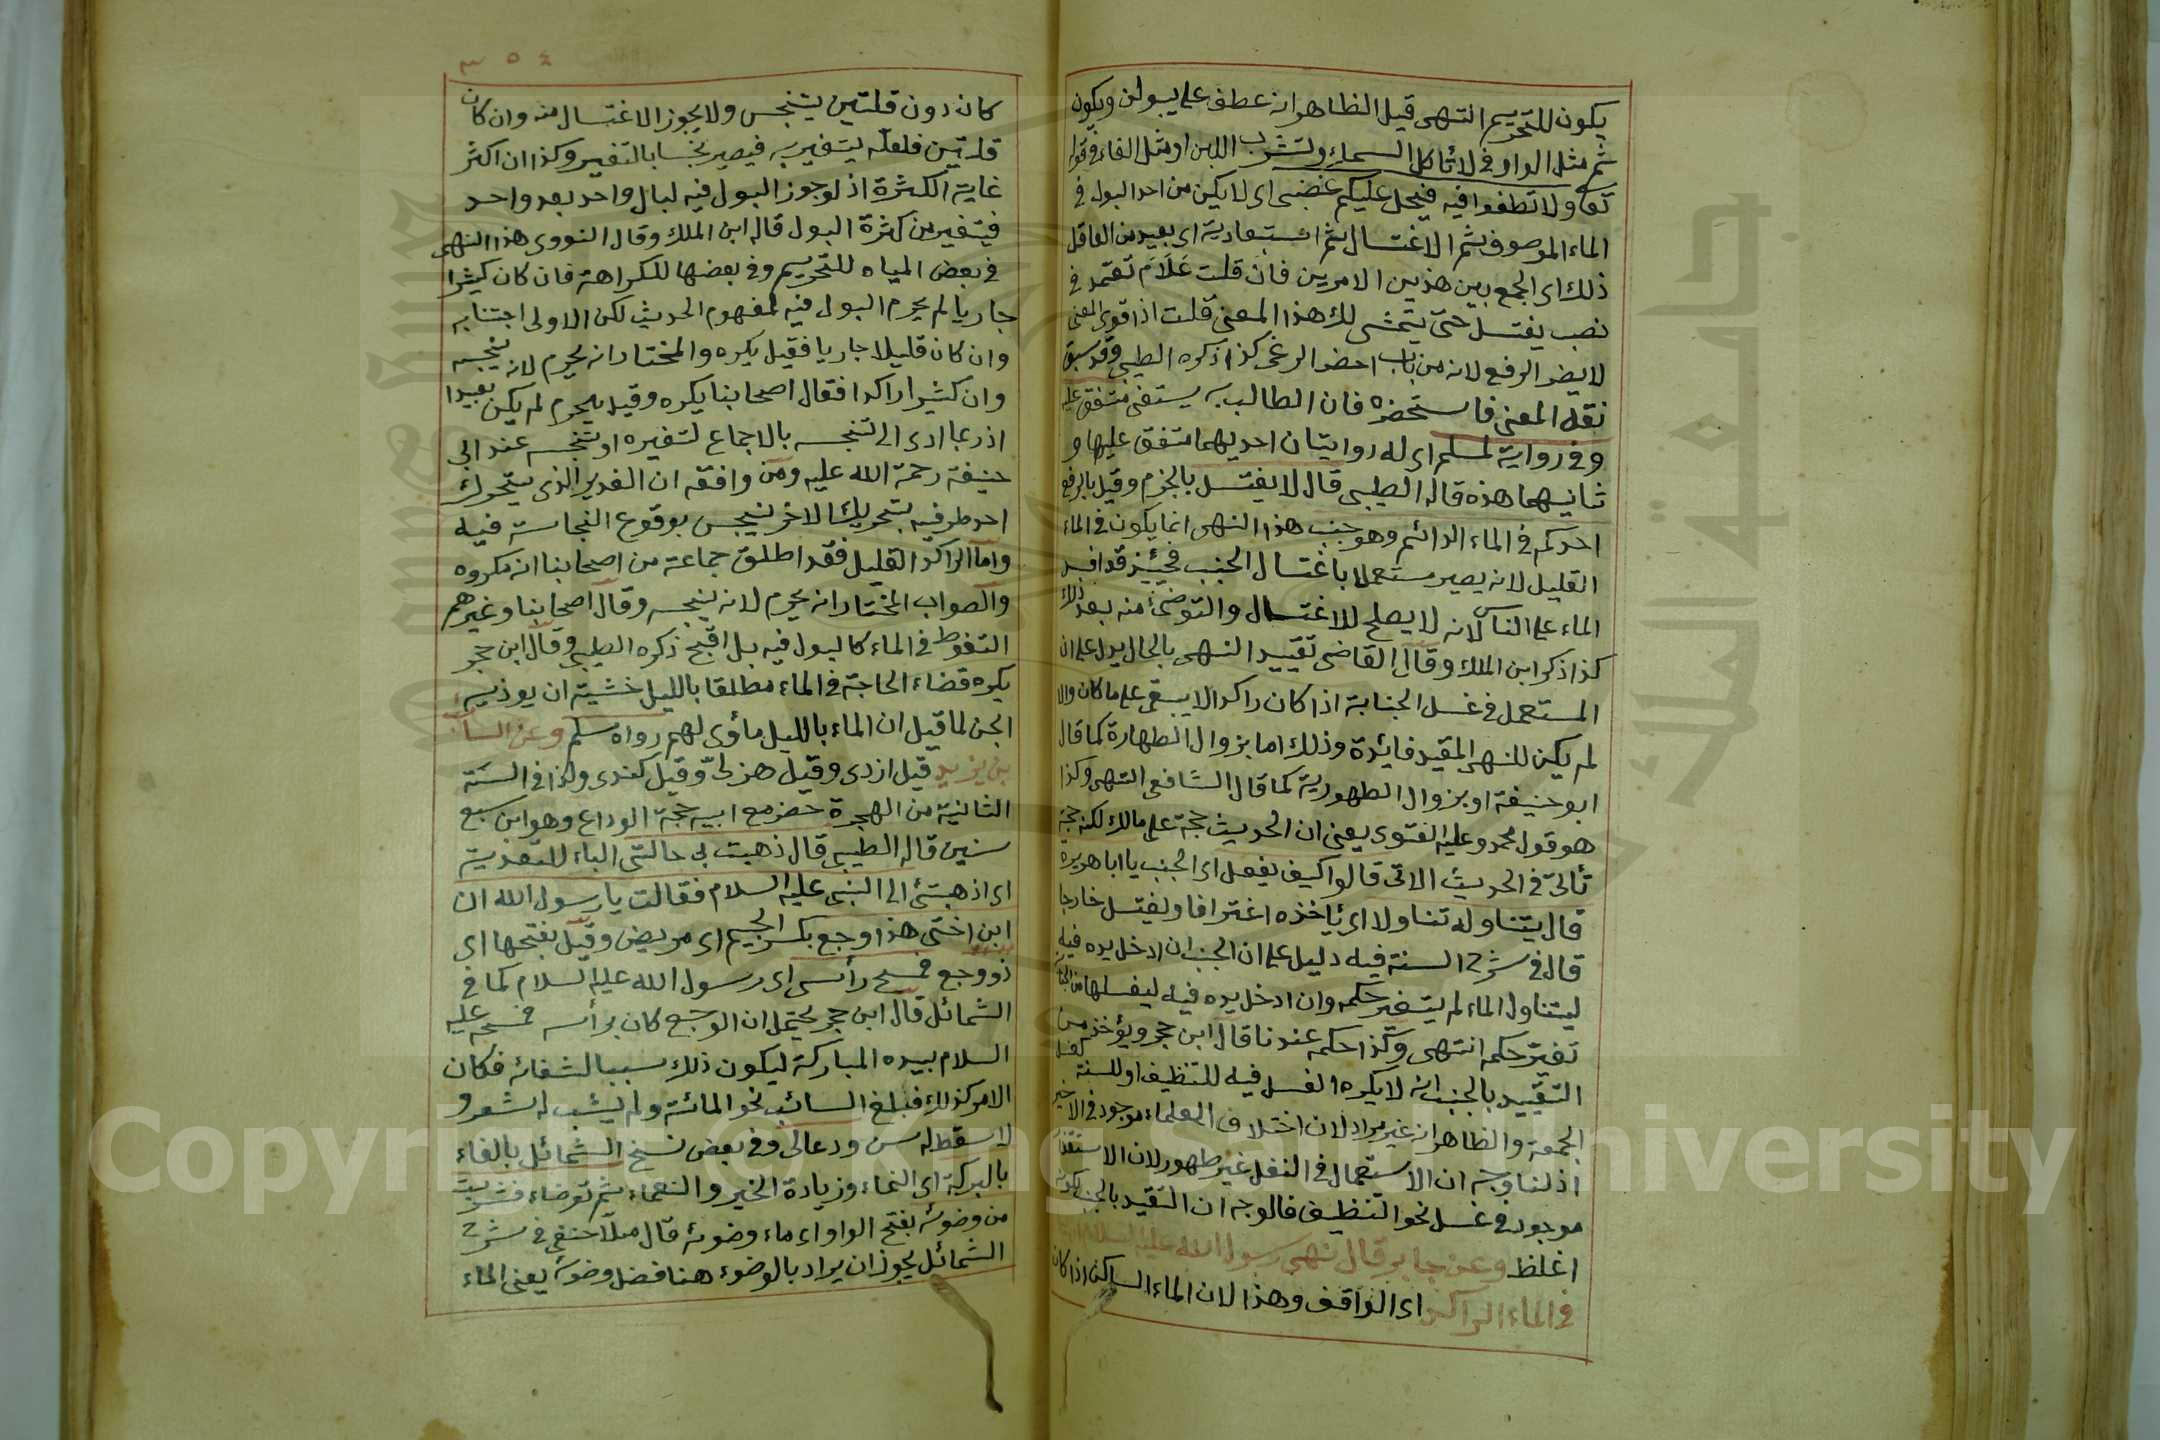 يكون للتحريم انتهى قيل الظاهر انه عطف على يبولن ويكون
ثم مثل الواو في لا تأكل السمك وتشرب اللبن او مثل الفاء في قوله
تعا ولا تطغوا فيه فيحل عليكم غضبي اى لا يكن من احد البول في
الماء الموصوف ثم الاغتسال ثم استبعادية اى بعيد من العاقل
ذلك اى الجمع بين هذين الامرين فان قلت علام تعتمد في
نصب يغتسل حتى يتمشى لك هذا المعنى قلت اذا قوى المعنى
لا يضر الرفع لانه من باب احضر الوغى كذا ذكره الطيبي وقد سبق
نقله المعنى فاستحضره فان الطالب به يستغنى متفق عليه
وفي رواية لمسلم اى له روايتان احديهما متفق عليها و
ثانيهما هذه قاله الطيبي قال لا يغتسل بالجزم وقيل بالرفع
احدكم في الماء الدائم وهو جنب هذا النهى انما يكون في الماء
القليل لانه يصير مستعملا باغتسال الجنب فحينئذ قد افسد
الماء على الناس لانه لا يصلح للاغتسال والتوضئ منه بعد ذلك
كذا ذكر ابن الملك وقال القاضى تقييد النهى بالحال يدل على ان
المستعمل في غسل الجنابة اذا كان راكدا لا يبقى على ما كان والا
لم يكن للنهى المقيد فائدة وذلك اما بزوال الطهارة كما قال
ابو حنيفة او بزوال الطهورية كما قال الشافعى انتهى وكذا
هو قول محمد وعليه الفتوى يعنى ان الحديث حجة على مالك لكنه حجة
تأتى في الحديث الاتى قالوا كيف يفعل اى الجنب يا ابا هريرة
قال يتناوله تناولا اى يأخذه اغترافا ويغتسل خارجا
قال في شرح السنة فيه دليل على ان الجنب ان ادخل يده فيه
ليتناول الماء لم يتغير حكمه وان ادخل يده فيه ليغسلها من الجنابة
تغير حكمه انتهى وكذا حكمه عندنا قال ابن حجر ويؤخذ من
التقييد بالجنب انه لا يكره الغسل فيه للتنظيف او للسنة كغسل
الجمعة والظاهر انه غير مراد لان اختلاف العلماء موجود في الاخير
اذ لنا وجه ان الاستعمال في النفل غير طهور لان الاستقذار
موجود في غسل نحو التنظيف فالوجه ان التقيد بالجنب لكونه
اغلظ وعن جابر قال نهى رسول الله عليه السلام
في الماء الراكد اى الواقف وهذا لان الماء الساكن اذا كان
٣٥٤
كان دون قلتين يتنجس ولا يجوز الاغتسال منه وان كان
قلتين فلعله يتغير به فيصير نجسا بالتغير وكذا ان اكثر
غاية الكثرة اذ لو جوز البول فيه لبال واحد بعد واحد
فيتغير من كثرة البول قاله ابن الملك وقال النووى هذا النهى
في بعض المياه للتحريم وفي بعضها للكراهة فان كان كثيرا
جاريا لم يحرم البول فيه لمفهوم الحديث لكن الاولى اجتنابه
وان كان قليلا جاريا فقيل يكره والمختار انه يحرم لانه ينجسه
وان كثيرا راكدا فقال اصحابنا يكره وقيل يحرم لم يكن بعيدا
اذ ربما ادى الى تنجسه بالاجماع لتغيره او تنجسه عند ابى
حنيفة رحمة الله عليه ومن وافقه ان الغدير الذى يتحرك
احد طرفيه بتحريك الاخر ينجس بوقوع النجاسة فيه
واما الراكد القليل فقد اطلق جماعة من اصحابنا انه مكروه
والصواب المختار انه يحرم لانه ينجسه وقال اصحابنا وغيرهم
التغوط في الماء كالبول فيه بل اقبح ذكره الطيبي وقال ابن حجر
يكره قضاء الحاجة في الماء مطلقا بالليل خشية ان يوذيه
الجن لما قيل ان الماء بالليل مأوى لهم رواه مسلم وعن السائب
بن يزيد قيل ازدى وقيل هذلى وقيل كندى ولد في السنة
الثانية من الهجرة حضر مع ابيه حجة الوداع وهو ابن سبع
سنين قاله الطيبي قال ذهبت بى خالتى الباء للتعدية
اى اذهبتنى الى النبى عليه السلام فقالت يا رسول الله ان
ابن اختى هذا وجع بكسر الجيم اى مريض وقيل بفتحها اى
ذو وجع فمسح رأسى اى رسول الله عليه السلام كما في
الشمائل قال ابن حجر يحتمل ان الوجع كان برأسه فمسحه عليه
السلام بيده المباركة ليكون ذلك سببا لشفائه فكان
الامر كذلك فبلغ السائب نحو المائة ولم يشب له شعر و
لا سقط له سن ودعا لى وفي بعض نسخ الشمائل بالفاء
بالبركة اى النماء وزيادة الخير والنعماء ثم توضاء فشربت
من وضوئه بفتح الواو اى ماء وضوئه قال ملا حنفى في شرح
الشمائل يجوز ان يراد بالوضوء هنا فضل وضوئه يعنى الماء
Copyright © King Saud University
جامعة الملك سعود